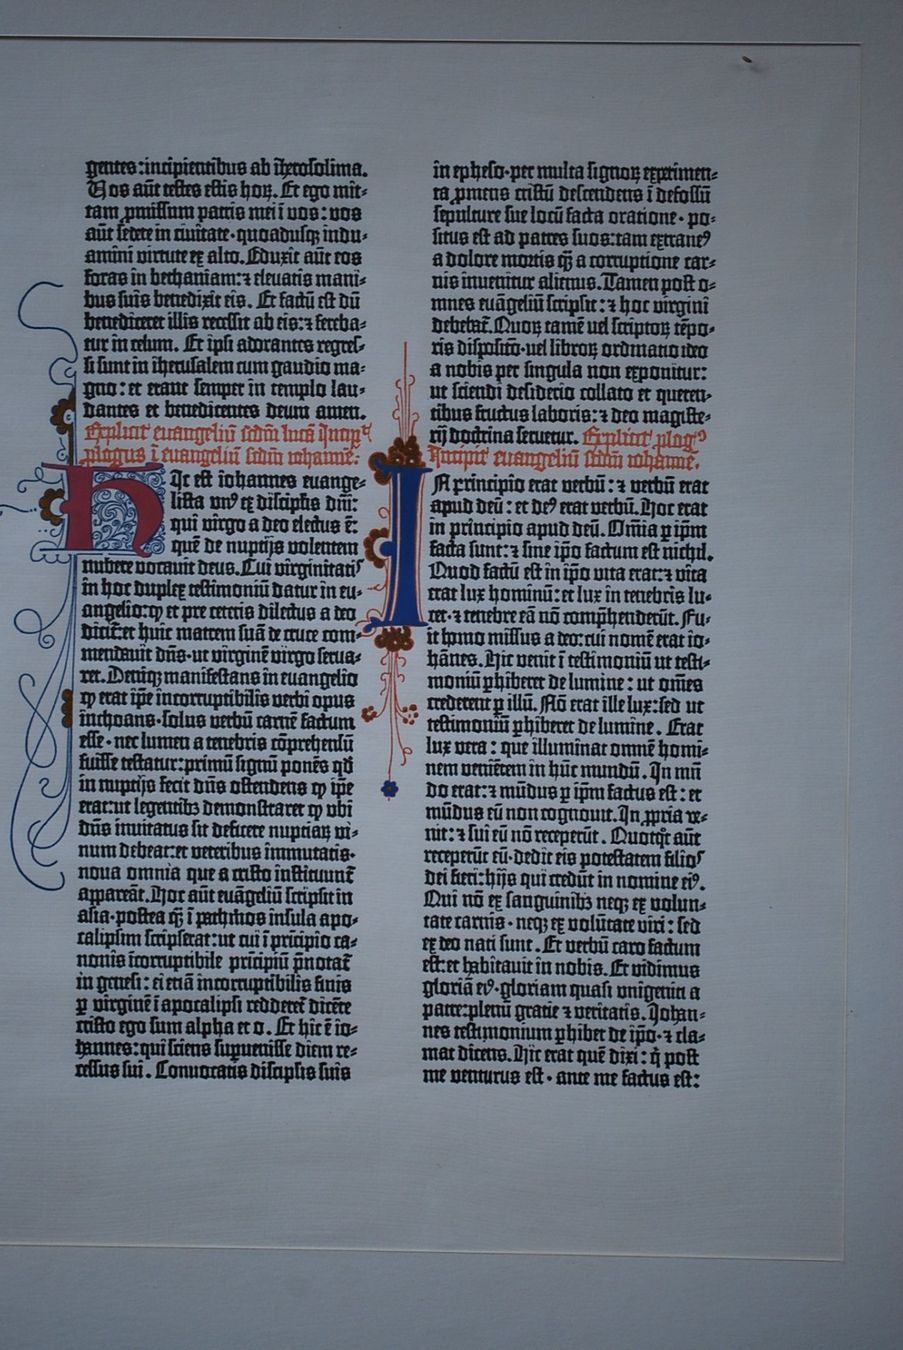 gentes:incipientibus ab ih̄erosolima.
Vos aūt testes estis hoꝝ. Et ego mit-
tam ꝓmissum patris mei ī vos: vos
aūt sedete in ciuitate·quoadusqꝫ indu-
amini virtute ex alto. Eduxit aūt eos
foras in bethaniam:⁊ eleuatis mani-
bus suis benedixit eis. Et factū est dū
benediceret illis recessit ab eis:⁊ fereba-
tur in celum. Et ipsi adorantes regres-
si sunt in iherusalem cum gaudio ma-
gno: et erant semper in templo lau-
dantes et benedicentes deum amen.
Explicit euangeliū scdm̄ lucā Incipit
ꝓlogus ī euangeliū scdm̄ iohannē:
Hic est iohannes euange-
lista vnꝰ ex discipl̄is dn̄i:
qui virgo a deo electus ē:
quē de nuptijs volentem
nubere vocauit deus. Cui virginitatis
in hoc duplex testimoniū datur in eu-
angelio:ꝙ et pre ceteris dilectus a deo
dicit̄:et huic matrem suā de cruce com-
mendauit dn̄s·ut virginē virgo serua-
ret. Deniqꝫ manifestans in euangelio
ꝙ erat ip̄e incorruptibilis verbi opus
inchoans·solus verbū carnē factum
esse·nec lumen a tenebris cōprehensū
fuisse testatur:primū signū ponēs qd̄
in nuptijs fecit dn̄s ostendens ꝙ ip̄e
erat:ut legentibꝫ demonstraret ꝙ vbi
dn̄s inuitatus sit deficere nuptiaꝝ vi-
num debeat:et veteribus immutatis·
noua omnia que a cristo instituunt̄
appareāt. Hoc aūt euāgeliū scripsit in
asia·postea qꝫ̄ ī pathmos insula apo-
calipsim scripserat:ut cui ī prīcipio ca-
nonis īcorruptibile prīcipiū p̄notat̄
in genesi: ei etiā incorruptibilis finis
ꝑ virginē ī apocalipsi redderet̄ dicēte
cristo ego sum alpha et o. Et hic ē io-
hannes:qui sciens supuenisse diem re-
cessus sui. Conuocatis discipl̄is suis
in epheso·per multa signoꝝ experimen-
ta ꝓmens cristū descendens ī defossū
sepulture sue locū facta oratione·po-
situs est ad patres suos:tam extraneꝰ
a dolore mortis qꝫ̄ a corruptione car-
nis inuenitur alienus. Tamen post o-
mnes euāgeliū scripsit:⁊ hoc virgini
debebat̄. Quoꝝ tamē uel scriptoꝝ tēpo-
ris disposicō·uel libroꝝ ordinatio ideo
a nobis per singula non exponitur:
ut sciendi desiderio collato et queren-
tibus fructus laboris:⁊ deo magiste-
rij doctrina seruetur. Explicit ꝓlogꝰ
Incipit euangeliū scdm̄ iohannē.
In principio erat verbū:⁊ verbū erat
apud deū: et deꝰ erat verbū. Hoc erat
in principio apud deū. Om̄ia ꝑ ip̄m
facta sunt:⁊ sine ip̄o factum est nichil.
Quod factū est in ip̄o vita erat:⁊ vita
erat lux hominū:et lux in tenebris lu-
cet·⁊ tenebre eā nō comp̄henderūt. Fu-
it homo missus a deo:cui nomē erat io-
hānes. Hic venit ī testimoniū ut testi-
moniū ꝑhiberet de lumine: ut om̄es
crederent ꝑ illū. Nō erat ille lux:sed ut
testimoniū ꝑhiberet de lumine. Erat
lux vera: que illuminat omnē homi-
nem veniētem in hūc mundū. In mū
do erat:⁊ mūdus ꝑ ip̄m factus est: et
mūdus eū non cognouit. In ꝓpria ve-
nit:⁊ sui eū nō receperūt. Quotqͦt aūt
receperūt eū·dedit eis potestatem filios
dei fieri:hijs qui credūt in nomine eiꝰ.
Qui nō ex sanguinibꝫ neqꝫ ex volun-
tate carnis·neqꝫ ex volūtate viri: sed
ex deo nati sunt. Et verbū caro factum
est:et habitauit in nobis. Et vidimus
gloriā eiꝰ·gloriam quasi vnigeniti a
patre:plenū gratie ⁊ veritatis. Johan-
nes testimonium ꝑhibet de ip̄o·⁊ cla-
mat dicens. Hic erat quē dixi: qͥ post
me venturus est·ante me factus est: